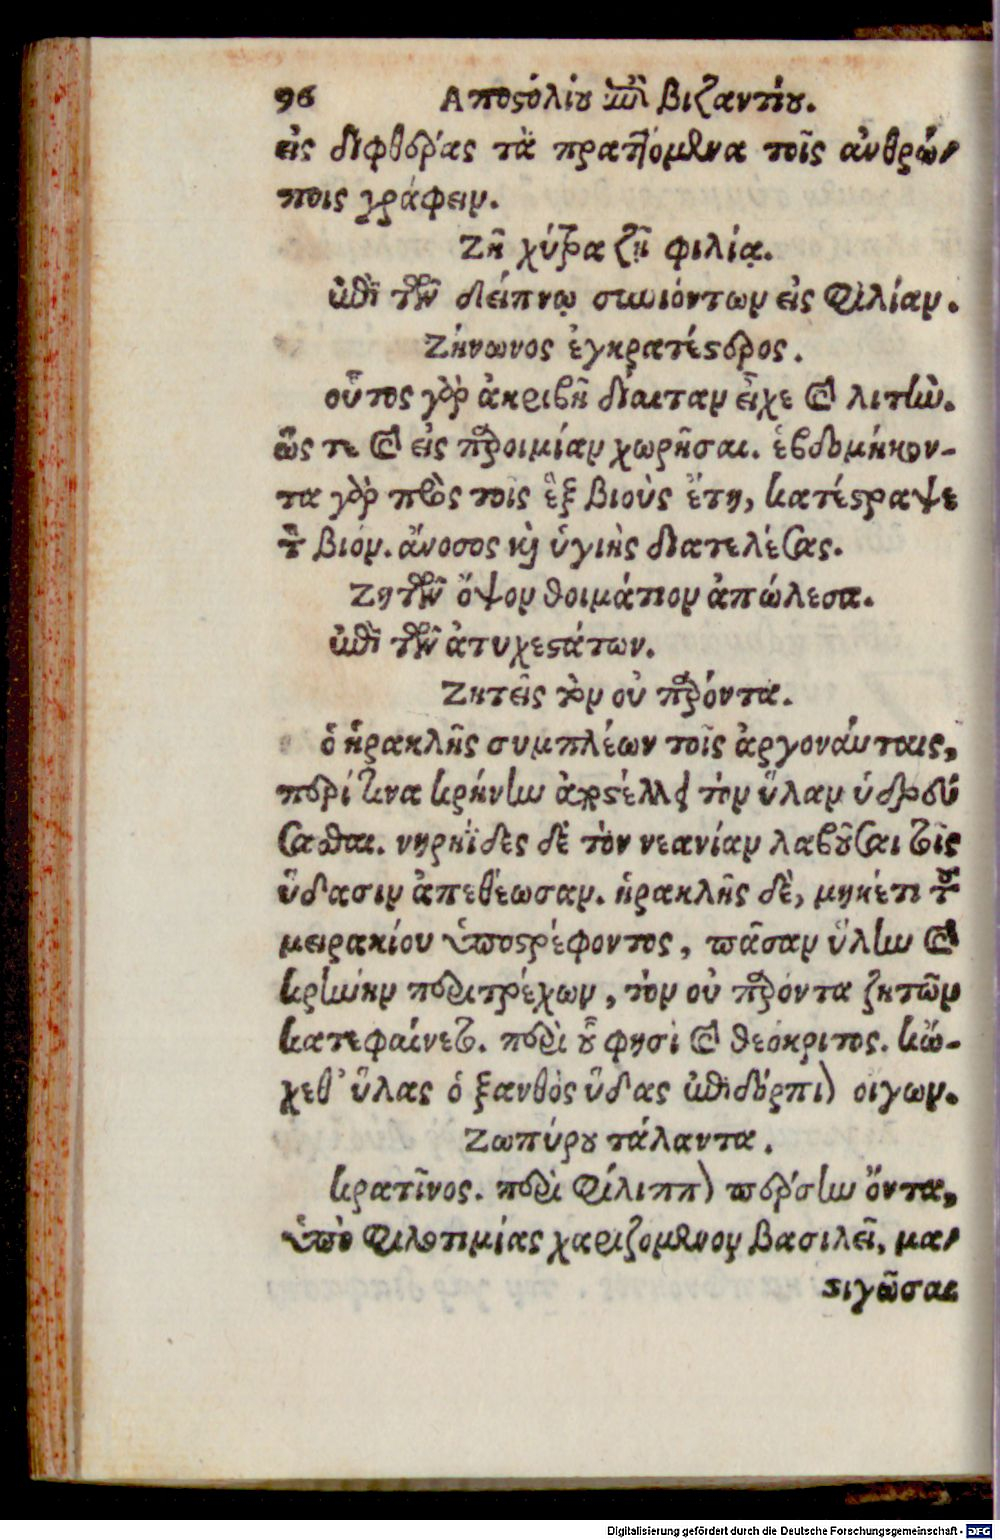 96 Αποστολίου τοῦ βιζαντίου.
εἰς διφθέρας τὰ πραττόμενα τοῖς ἀνθρώ-
ποις γράφειν.
Ζῇ χύτρα ζῇ φιλία.
ἐπὶ τῶν δείπνῳ συνιόντων εἰς φιλίαν.
Ζήνωνος ἐγκρατέστερος.
οὗτος γὰρ ἀκριβῆ δίαιταν εἶχε καὶ λιτὴν.
ὥς τε καὶ εἰς παροιμίαν χωρῆσαι. ἑβδομήκον-
τα γὰρ πρὸς τοῖς ἓξ βιοὺς ἔτη, κατέστραψε
τὸν βίον. ἄνοσος καὶ ὑγιὴς διατελέσας.
Ζητῶν ὄψον θοιμάτιον ἀπώλεσα.
ἐπὶ τῶν ἀτυχεστάτων.
Ζητεῖς τὸν οὐ παρόντα.
ὁ ἡρακλῆς συμπλέων τοῖς ἀργοναύταις,
περί τινα κρήνην ἀπέστειλε τὸν ὕλαν ὑδρεύ
σασθαι. νηρηΐδες δὲ τὸν νεανίαν λαβοῦσαι τοῖς
ὕδασιν ἀπεθέωσαν. ἡρακλῆς δὲ, μηκέτι τοῦ
μειρακίου ὑποστρέφοντος, πᾶσαν ὕλην καὶ
κρήνην περιτρέχων, τὸν οὐ παρόντα ζητῶν
κατεφαίνετο. περὶ οὗ φησὶ καὶ θεόκριτος. κᾤ-
χεθ' ὕλας ὁ ξανθὸς ὕδας ἐπιδόρπιον οἴσων.
Ζωπύρου τάλαντα.
κρατῖνος. περὶ φίλιππον πέρσην ὄντα,
ὑπὸ φιλοτιμίας χαριζόμενον βασιλεῖ, μα-
στιγῶσαι
Digitalisierung gefördert durch die Deutsche Forschungsgemeinschaft - DFG